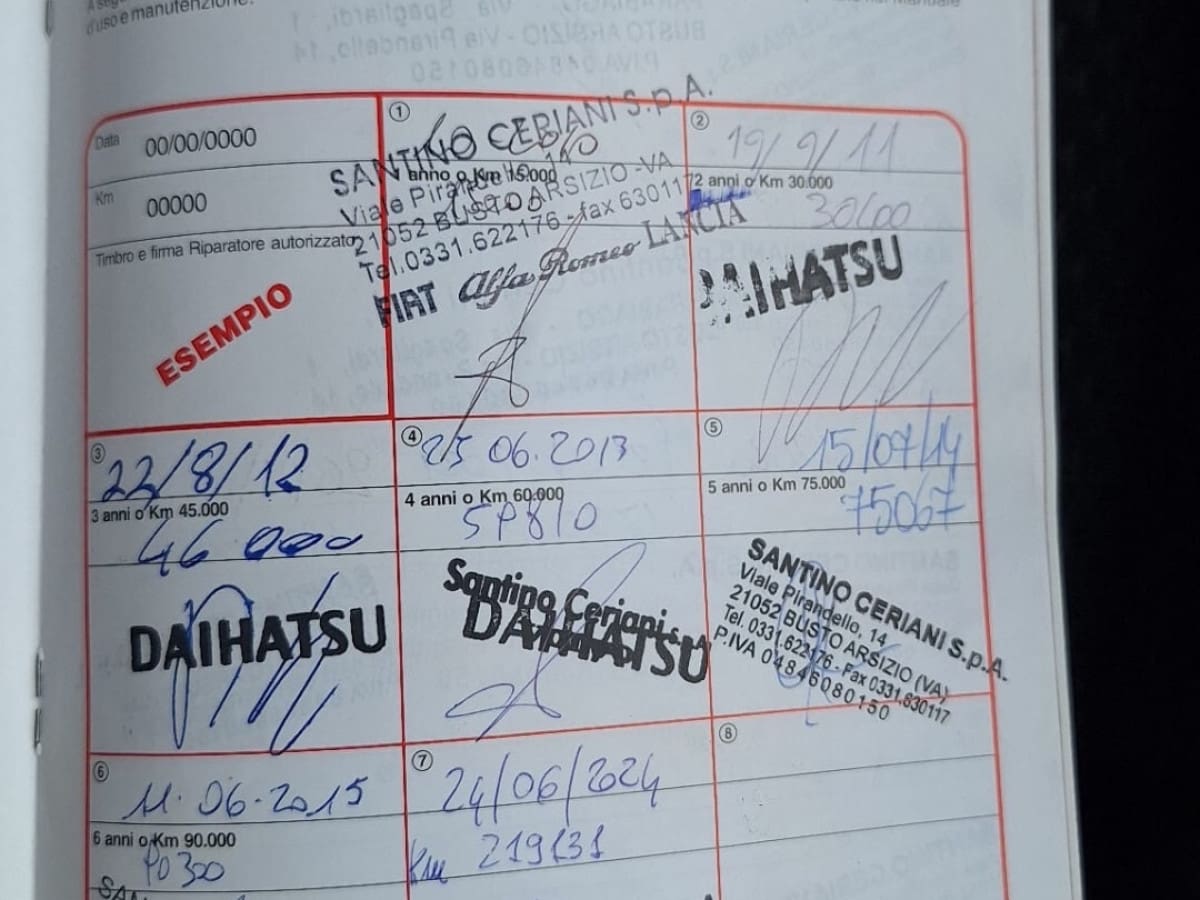 d'uso e manutenzione.
Data 00/00/0000
Km 00000
Timbro e firma Riparatore autorizzato
ESEMPIO
1
anno o Km 15.000
SANTINO CERIANI S.p.A.
Viale Pirandello, 14
21052 BUSTO ARSIZIO - VA
Tel. 0331.622176 - fax 630117
FIAT Alfa Romeo LANCIA
2
19/9/11
2 anni o Km 30.000
30000
DAIHATSU
3
22/8/12
3 anni o Km 45.000
46 000
DAIHATSU
4
25 06.2013
4 anni o Km 60.000
Santino Ceriani S.p.A.
DAIHATSU
5
15/07/14
5 anni o Km 75.000
75067
SANTINO CERIANI S.p.A.
Viale Pirandello, 14
21052 BUSTO ARSIZIO (VA)
Tel. 0331.622176 - Fax 0331.630117
P.IVA 04846080150
6
11.06.2015
6 anni o Km 90.000
90300
SAN
7
24/06/2024
Km 219131
8